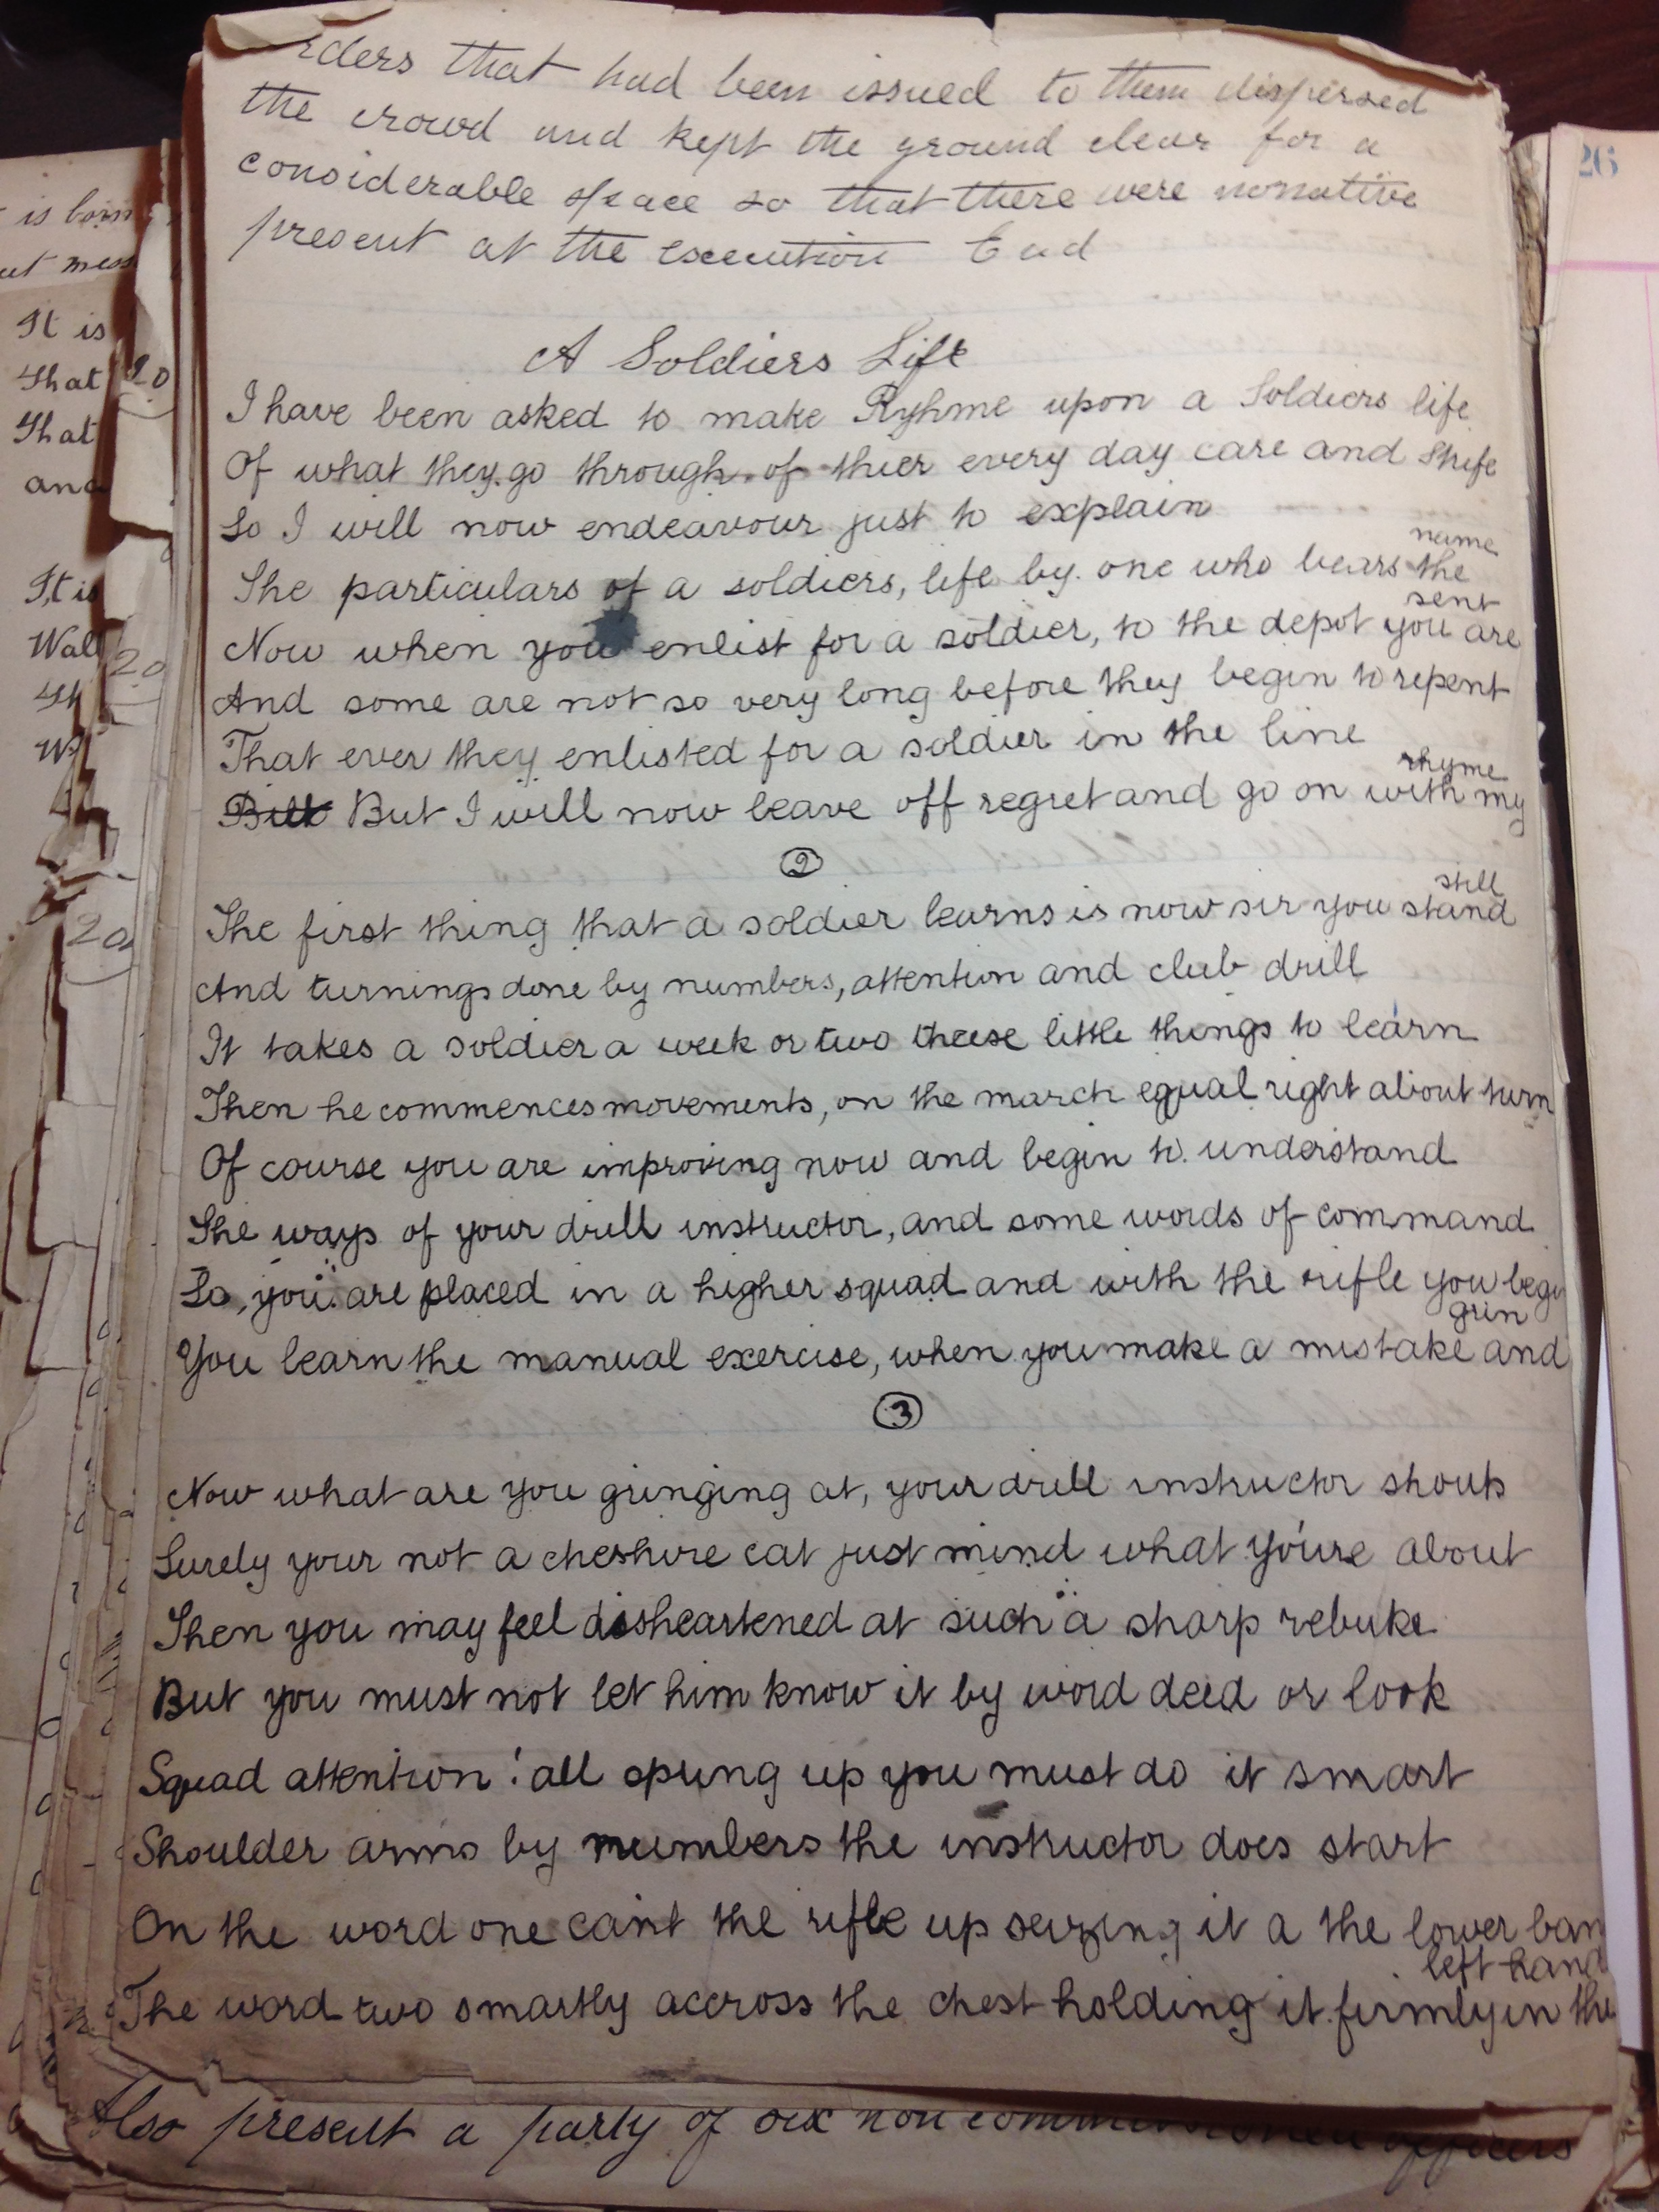 rders that had been issued to them dispersed
the crowd and kept the ground clear for a
considerable space so that there were no native
present at the execution End
A Soldiers Life
I have been asked to make Ryhme upon a Soldiers life
Of what they go through of thier every day care and Strife
So I will now endeavour just to explain
The particulars of a soldiers, life by one who bears the
name
Now when you enlist for a soldier, to the depot you are
sent
And some are not so very long before they begin to repent
That ever they enlisted for a soldier in the line
But I will now leave off regret and go on with my
rhyme
2
The first thing that a soldier learns is now sir you stand
still
And turnings done by numbers, attention and club drill
It takes a soldier a week or two theese little things to learn
Then he commences movements, on the march equal right about turn
Of course you are improving now and begin to understand
The ways of your drill instructor, and some words of command
So, you are placed in a higher squad and with the rifle you begin
You learn the manual exercise, when you make a mistake and
grin
3
Now what are you gringing at, your drill instructor shouts
Surely your not a cheshire cat just mind what you're about
Then you may feel disheartened at such a sharp rebuke
But you must not let him know it by word deed or look
Squad attention! all spung up you must do it smart
Shoulder arms by numbers the instructor does start
On the word one cant the rifle up seizing it a the lower ban
The word two smartly accross the chest holding it firmly in the
left hand
Also present a party of six non commissioned officers
is born
ut mess
It is
That
That
and
It is
Wal
Th
W
20
20
20
26